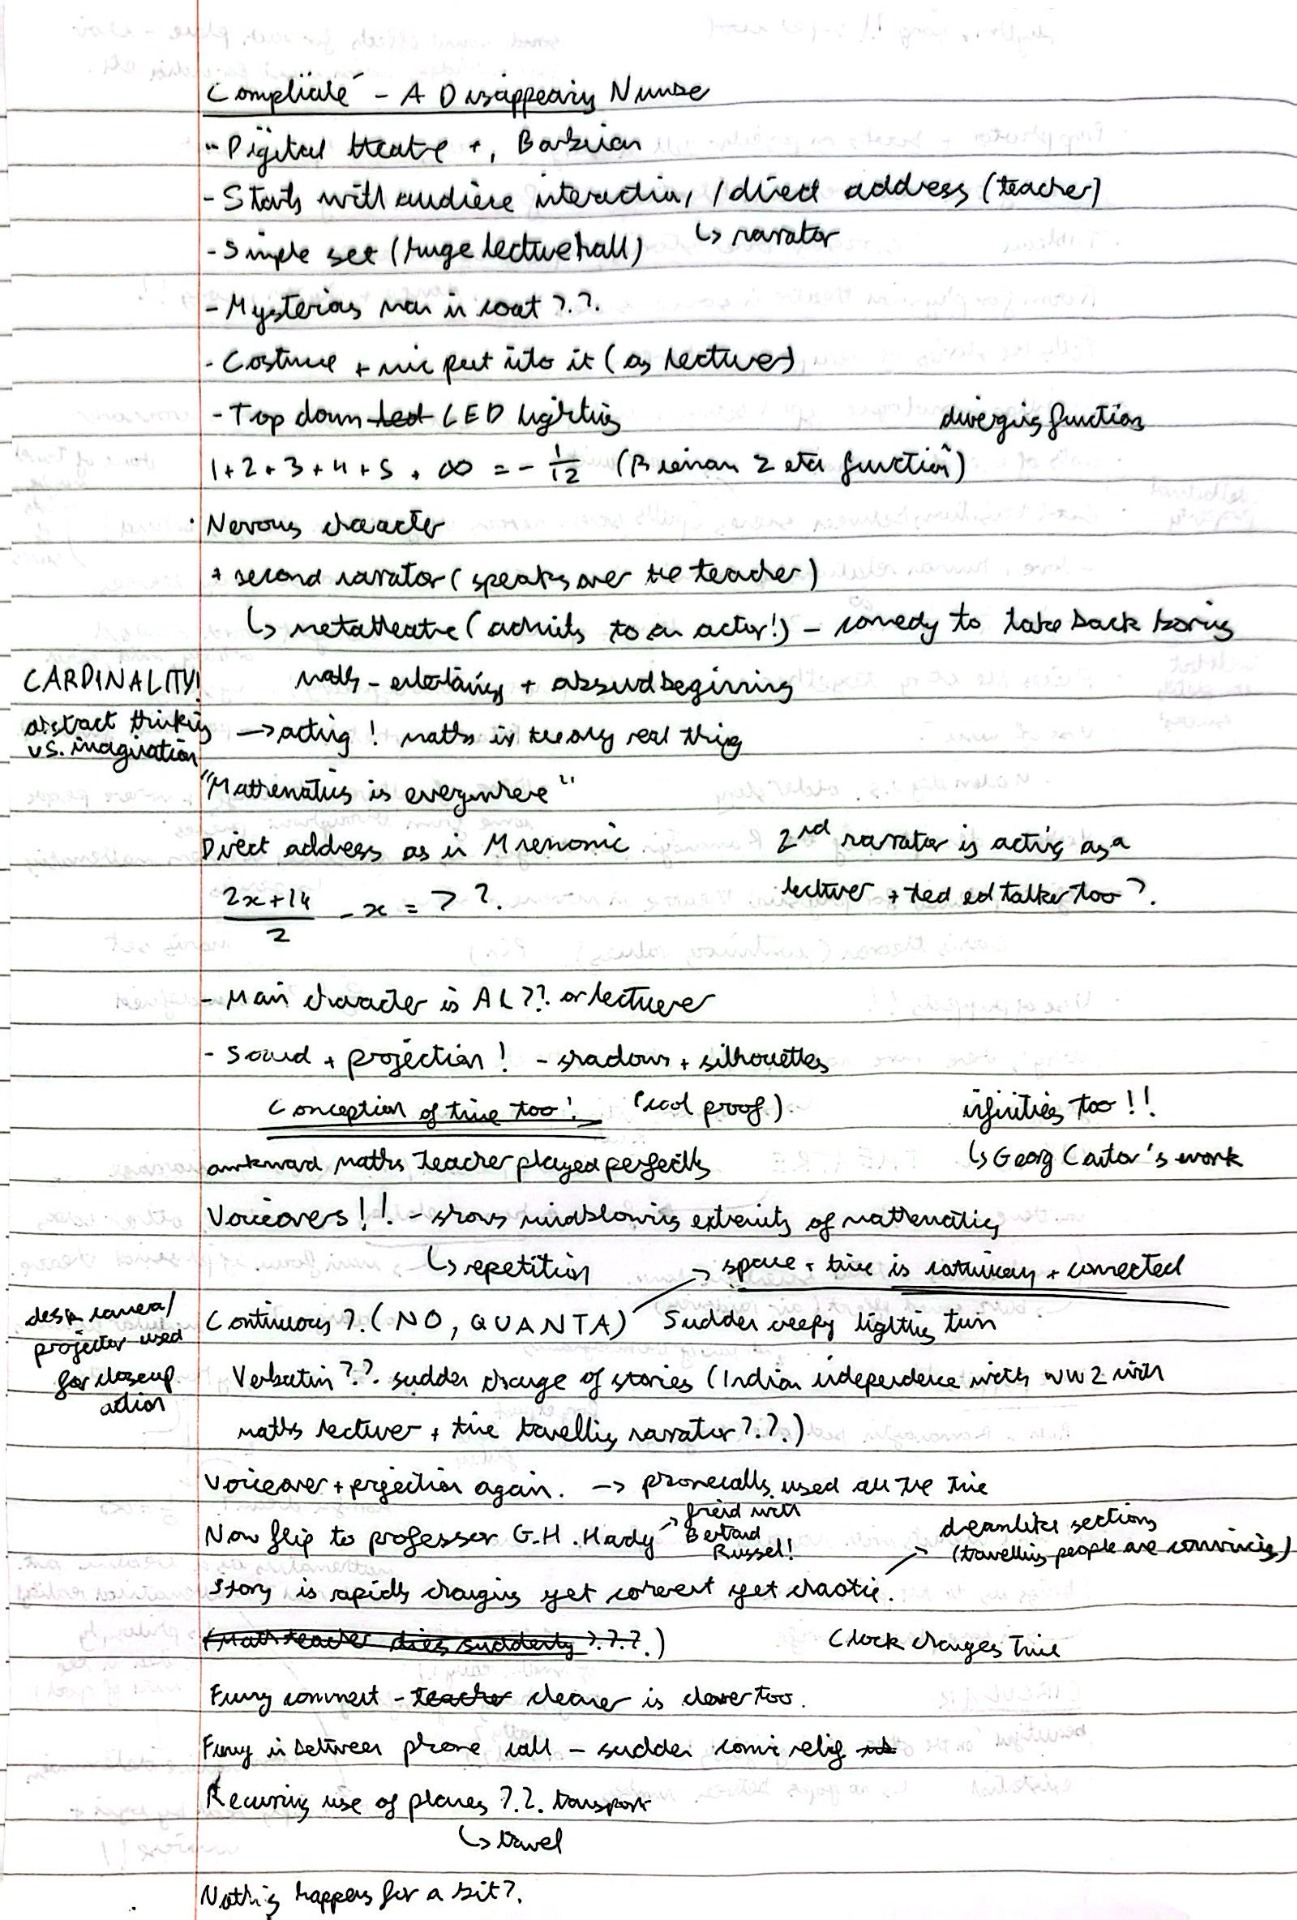 Complicité - A Disappearing Number
- Digital theatre +, Barbican
- Starts with audience interaction, / direct address (teacher)
↳ narrator
- Simple set (huge lecture hall)
- Mysterious man in coat ??
- Costume + mic put into it (as lecturer)
- Top down led LED lighting
diverging function
1+2+3+4+5 + ∞ = - 1/12 (Rieman Zeta function)
· Nervous character
+ second narrator (speaks over the teacher)
↳ metatheatre (admits to an actor!) - comedy to take back boring
CARDINALITY!
maths - entertaining + absurd beginning
abstract thinking vs. imagination
→ acting! maths is theory real thing
"Mathematics is everywhere"
Direct address as in Mnemonic
2nd narrator is acting as a
lecturer + ted ed talker too?
(2x+14)/2 - x = 7 ?
- Main character is AL?? or lecturer
- Sound + projection! - shadows + silhouettes
Conception of time too! (cool proof)
infinities too!!
awkward maths teacher played perfectly
↳ Georg Cantor's work
Voiceovers!! - shows mindblowing extremity of mathematics
↳ repetition
→ space + time is continuous + connected
desk camera/
projector used
for closeup
action
Continuous? (NO, QUANTA)
Sudden creepy lighting turn
Verbatim?? sudden change of stories (Indian independence with WW2 with
maths lecturer + time travelling narrator??)
Voiceover + projection again. → phonecalls used all the time
Now flip to professor G.H. Hardy
→ friend with
Bertrand
Russel!
→ dreamlike sections
(travelling people are convincing)
Story is rapidly changing yet coherent yet chaotic.
(Math teacher dies suddenly ???)
Clock changes time
Funny comment - teacher cleaner is clever too.
Funny in between phone call - sudden comic relief
Recurring use of planes ?? transport
↳ travel
Nothing happens for a bit?